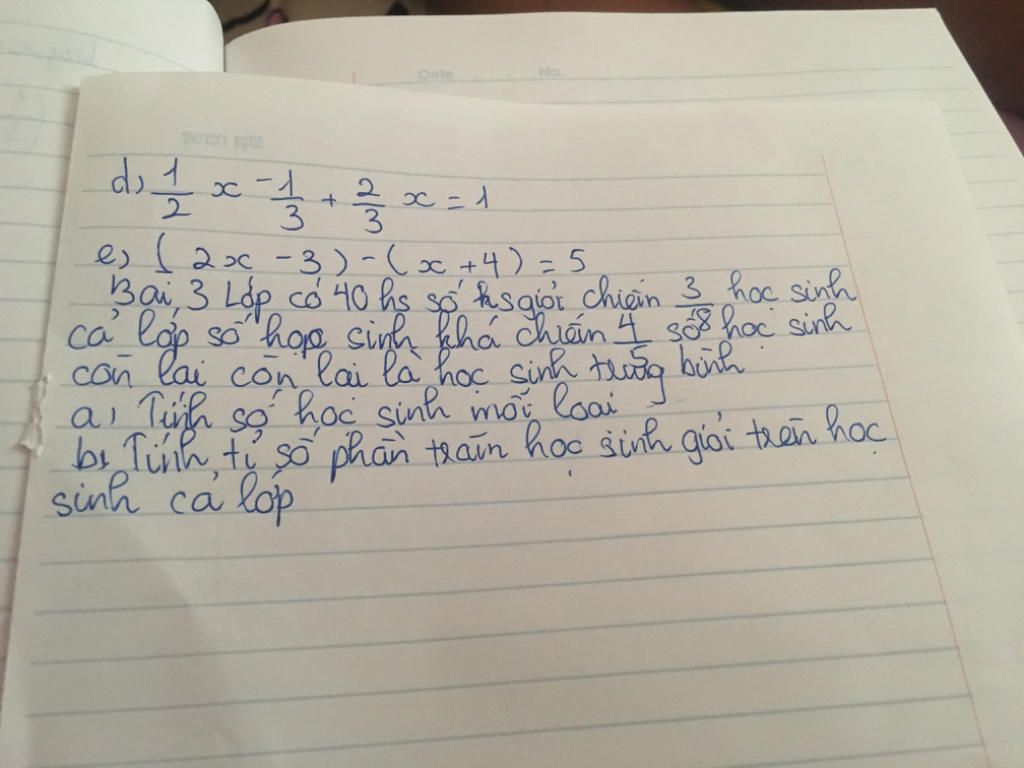 Date . . No.
d, 1/2 x - 1/3 + 2/3 x = 1
e, ( 2x - 3 ) - ( x + 4 ) = 5
Bài 3 Lớp có 40 hs số hs giỏi chiến 3/8 học sinh
cả lớp số học sinh khá chiến 4/5 số học sinh
còn lai còn lai là học sinh trung bình
a, Tính số học sinh mỗi loai
b, Tính tỉ số phần trăn học sinh giỏi trên học
sinh cả lớp